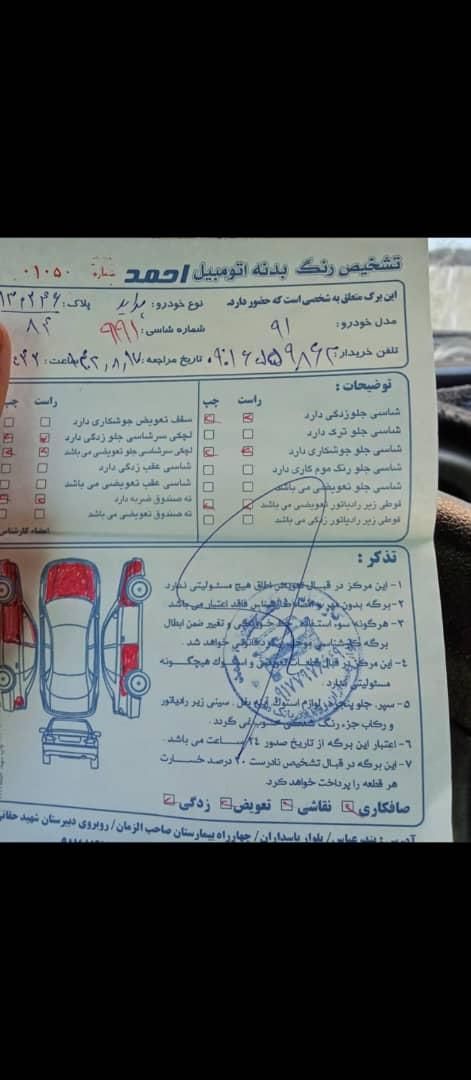 تشخیص رنگ بدنه اتومبیل احمد شماره ۰۱۰۵۰
این برگ متعلق به شخصی است که حضور دارد. نوع خودرو: پراید پلاک:
مدل خودرو: ۹۱ شماره شاسی: ۹۹۱ ۸۴
تلفن خریدار: تاریخ مراجعه: ۴۰۲,۸,۱۷ ساعت:
توضیحات:
راست چپ
شاسی جلو زدگی دارد
شاسی جلو ترک دارد
شاسی جلو جوشکاری دارد
شاسی جلو رنگ موم کاری دارد
شاسی جلو تعویضی می باشد
قوطی زیر رادیاتور تعویضی می باشد
قوطی زیر رادیاتور زدگی می باشد
راست چپ
سقف تعویض جوشکاری دارد
لچکی سرشاسی جلو زدگی دارد
لچکی سرشاسی جلو تعویضی می باشد
شاسی عقب زدگی دارد
شاسی عقب تعویضی می باشد
ته صندوق ضربه دارد
ته صندوق تعویضی می باشد
امضاء کارشناس
تذکر:
۱- این مرکز در قبال تعویض اطاق هیچ مسئولیتی ندارد
۲- برگه بدون مهر و امضاء کارشناس فاقد اعتبار می باشد
۳- هرگونه سوء استفاده، خط خوردگی و تغییر ضمن ابطال
برگه کارشناسی موجب پیگرد قانونی خواهد شد.
۴- این مرکز در قبال قطعات تعویض و استوک هیچگونه
مسئولیتی ندارد.
۵- سپر، جلو پنجره، لوازم استوک، سینی زیر رادیاتور
و رکاب جزء رنگ شدگی محسوب نمی گردد.
۶- اعتبار این برگه از تاریخ صدور ۲۴ ساعت می باشد.
۷- این برگه در قبال تشخیص نادرست ۲۰ درصد خسارت
هر قطعه را پرداخت خواهد کرد.
صافکاری نقاشی تعویض زدگی
آدرس: بندرعباس/ بلوار پاسداران/ چهارراه بیمارستان صاحب الزمان/ روبروی دبیرستان شهید حقانی